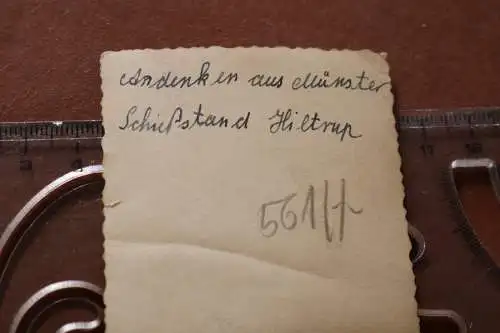 Andenken aus Münster
Schießstand Hiltrup
561/7
17 18